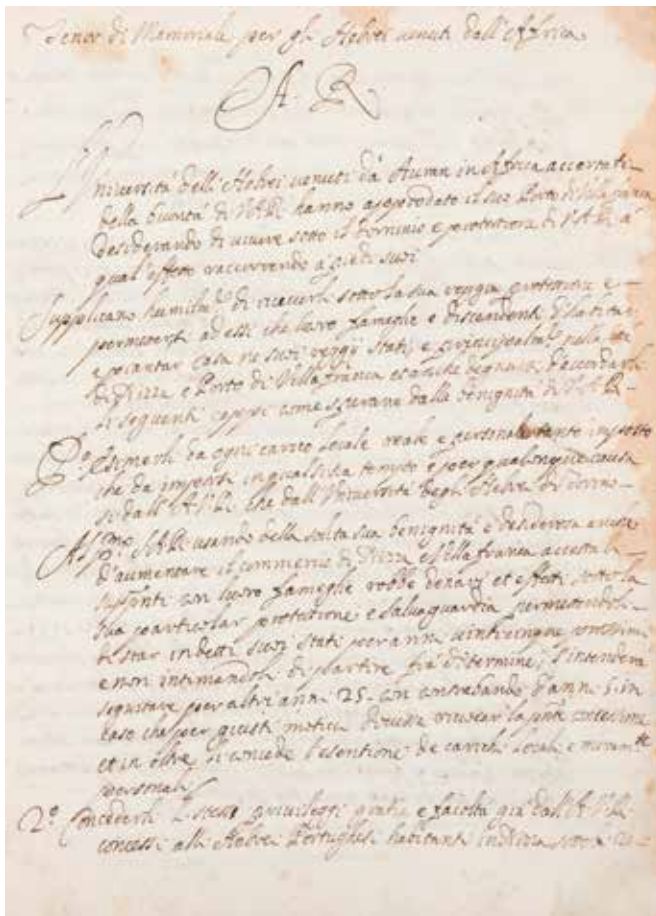 Tenor di Memoriale per gli Hebrei venuti dall'Affrica
A. R.
L'Università dell'Hebrei venuti dà Auran in Affrica accertati
della buontà di V.A.R. hanno approdato il suo Porto di Villafranca
desiderando di vivere sotto il dominio e protettione di V.A.R. à
qual'effeto raccorrendo a' piedi suoi
Supplicano humilm.te di riceverli sotto la sua reggia protettione e
permeterli ad essi che loro fameglie e discendenti d'habitar
e piantar casa ne suoi reggij stati, e principalm.te nella città
di Nizza e Porto di Villafranca et anche degnarsi d'accordarli
li seguenti cappi come sperano dalla benignità di V.A.R.
P.o Esimerli da ogni carico locale reale e personale tanto imposto
che da imporsi in qualsisia tempo e per qualonque causa
si dall'A.V.R. che dall'Università degli Hebrei di Torino
Al p.mo S.A.R. usando della solita sua benignità e desiderosa
d'aumentare il commercio di Nizza e Villafranca accetta li
supp.nti con loro fameglie robbe denari et effeti sotto la
sua particolar protettione e salvaguardia permettendoli
di star in detti suoi stati per anni vinticinque prossimi
e non intimandoli di partire frà di termine, s'intenderà
seguitare per altri anni 25. con contrabando d'anni 5. in
caso che per giusti motivi
et in oltre si concede l'esentione de carichi locali e meram.te
personali
2.o Concederli l'istessi privileggi gratie e facoltà già dall'A.V.R.
concessi alli Hebrei Portughesi habitanti in Nizza sotto